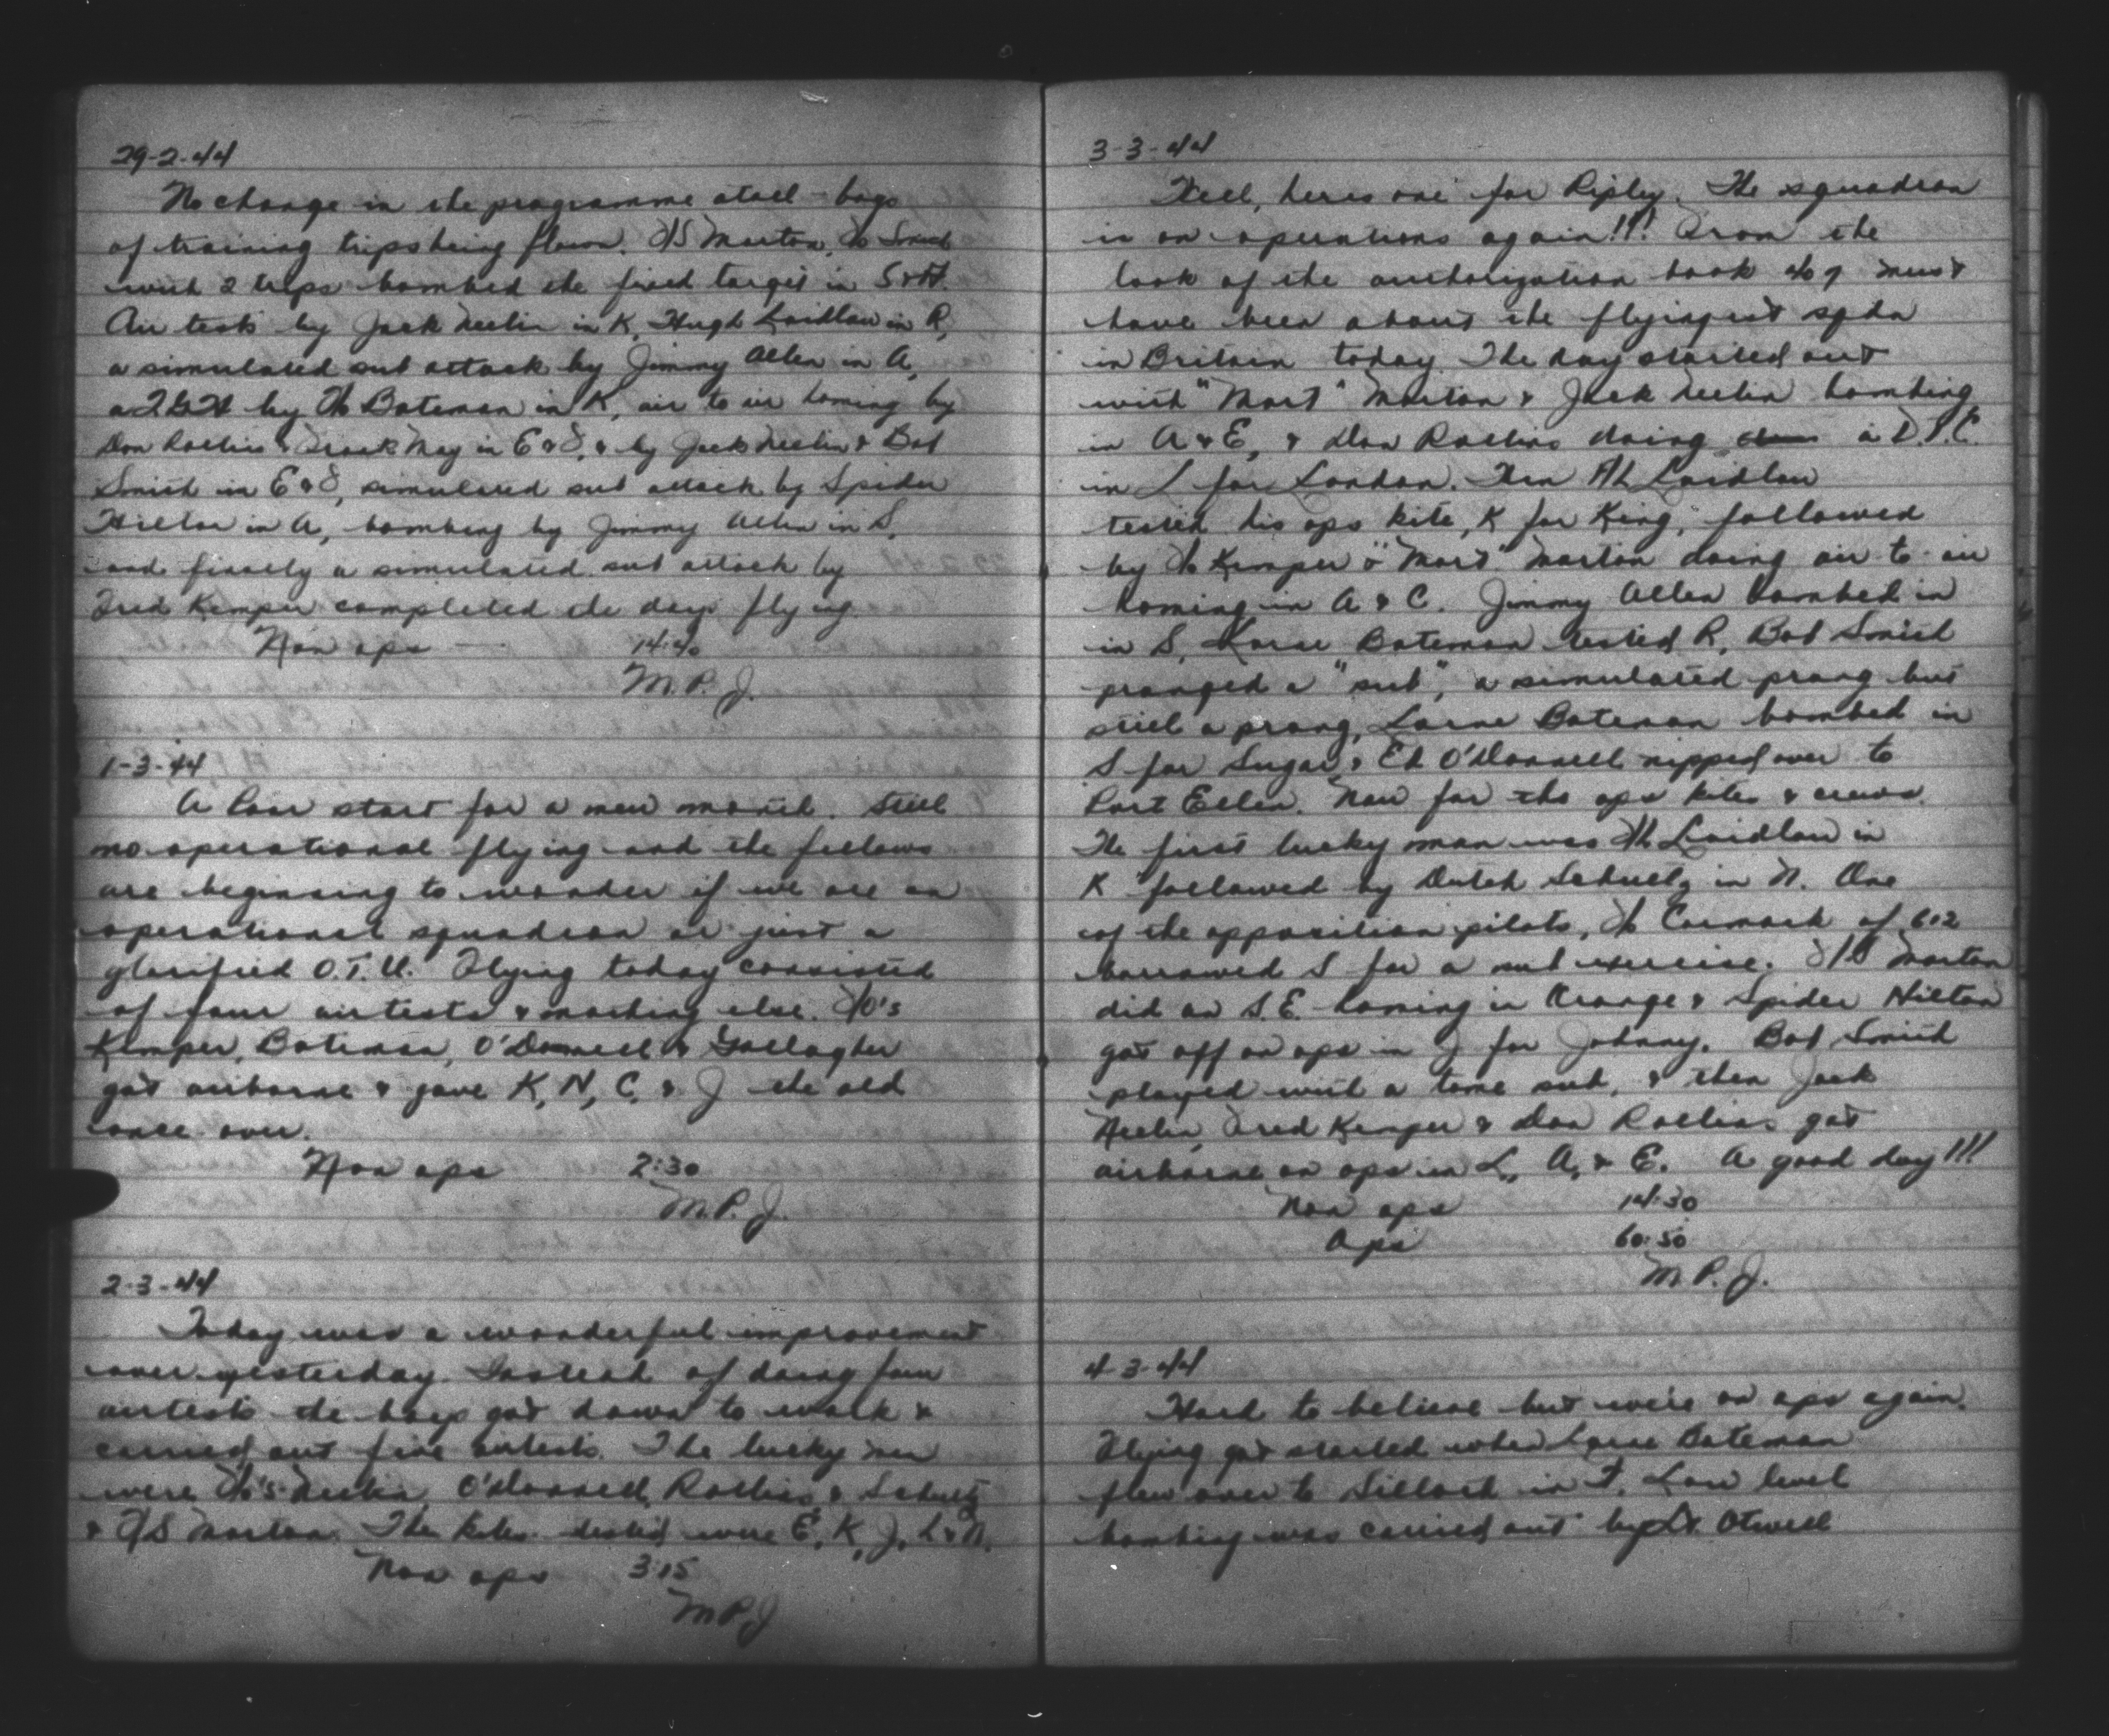 29-2-44
No change in the programme at all - bags
of training trips being flown. F/S Morton, F/O Smith
with 2 trips bombed the fixed target in S & N.
Air tests by Jack Neelin in K, Hugh Laidlaw in R,
a simulated sub attack by Jimmy Allen in A,
a by F/O Bateman in K, air to air homing by
Don Rollins & Frank May in E & S, & by Jack Neelin & Bob
Smith in E & S, simulated sub attack by Spider
Hilton in A, bombing by Jimmy Allen in S,
and finally a simulated sub attack by
Fred Kemper completed the days flying.
Non ops 14:40
M.P.J.
1-3-44
A poor start for a new month. Still
no operational flying and the fellows
are beginning to wonder if we are an
operational squadron or just a
glorified O.T.U. Flying today consisted
of four airtests & nothing else. F/O's
Kemper, Bateman, O'Donnell & Gallagher
got airborne & gave K, N, C, & J the old
once over.
Non ops 2:30
M.P.J.
2-3-44
Today was a wonderful improvement
over yesterday. Instead of doing four
airtests the boys got down to work &
carried out five airtests. The lucky men
were F/O's Neelin, O'Donnell, Rollins & Schultz
& F/S Morton. The kites tested were E, K, J, L & N.
Non ops 3:15
M.P.J
3-3-44
Well, heres one for Ripley. The squadron
is on operations again!!! From the
look of the authorization book 407 must
have been about the flyingest sqdn
in Britain today. The day started out
with "Mort" Morton & Jack Neelin bombing
in A & E, & Don Rollins doing a D.P.C.
in L for London. Then F/L Laidlaw
tested his ops kite, K for King, followed
by F/O Kemper & "Mort" Morton doing air to air
homing in A & C. Jimmy Allen bombed in
in S, Lorne Bateman tested R, Bob Smith
pranged a "sub", a simulated prang but
still a prang, Lorne Bateman bombed in
S for Sugar & Ed O'Donnell nipped over to
Port Ellen. Now for the ops kites & crews.
The first lucky man was F/L Laidlaw in
K followed by Dutch Schultz in N. One
of the opposition pilots, F/O Cormack of 612
borrowed S for a sub exercise. F/S Morton
did an S.E. homing in Orange & Spider Hilton
got off on ops in J for Johnny. Bob Smith
played with a tame sub, & then Jack
Neelin, Fred Kemper & Don Rollins got
airborne on ops in L, A, & E. A good day!!!
Non ops 14:30
Ops 60:50
M.P.J.
4-3-44
Hard to believe but we're on ops again.
Flying got started when Lorne Bateman
flew over to Silloth in F. Low level
bombing was carried out by Lt. Otwell